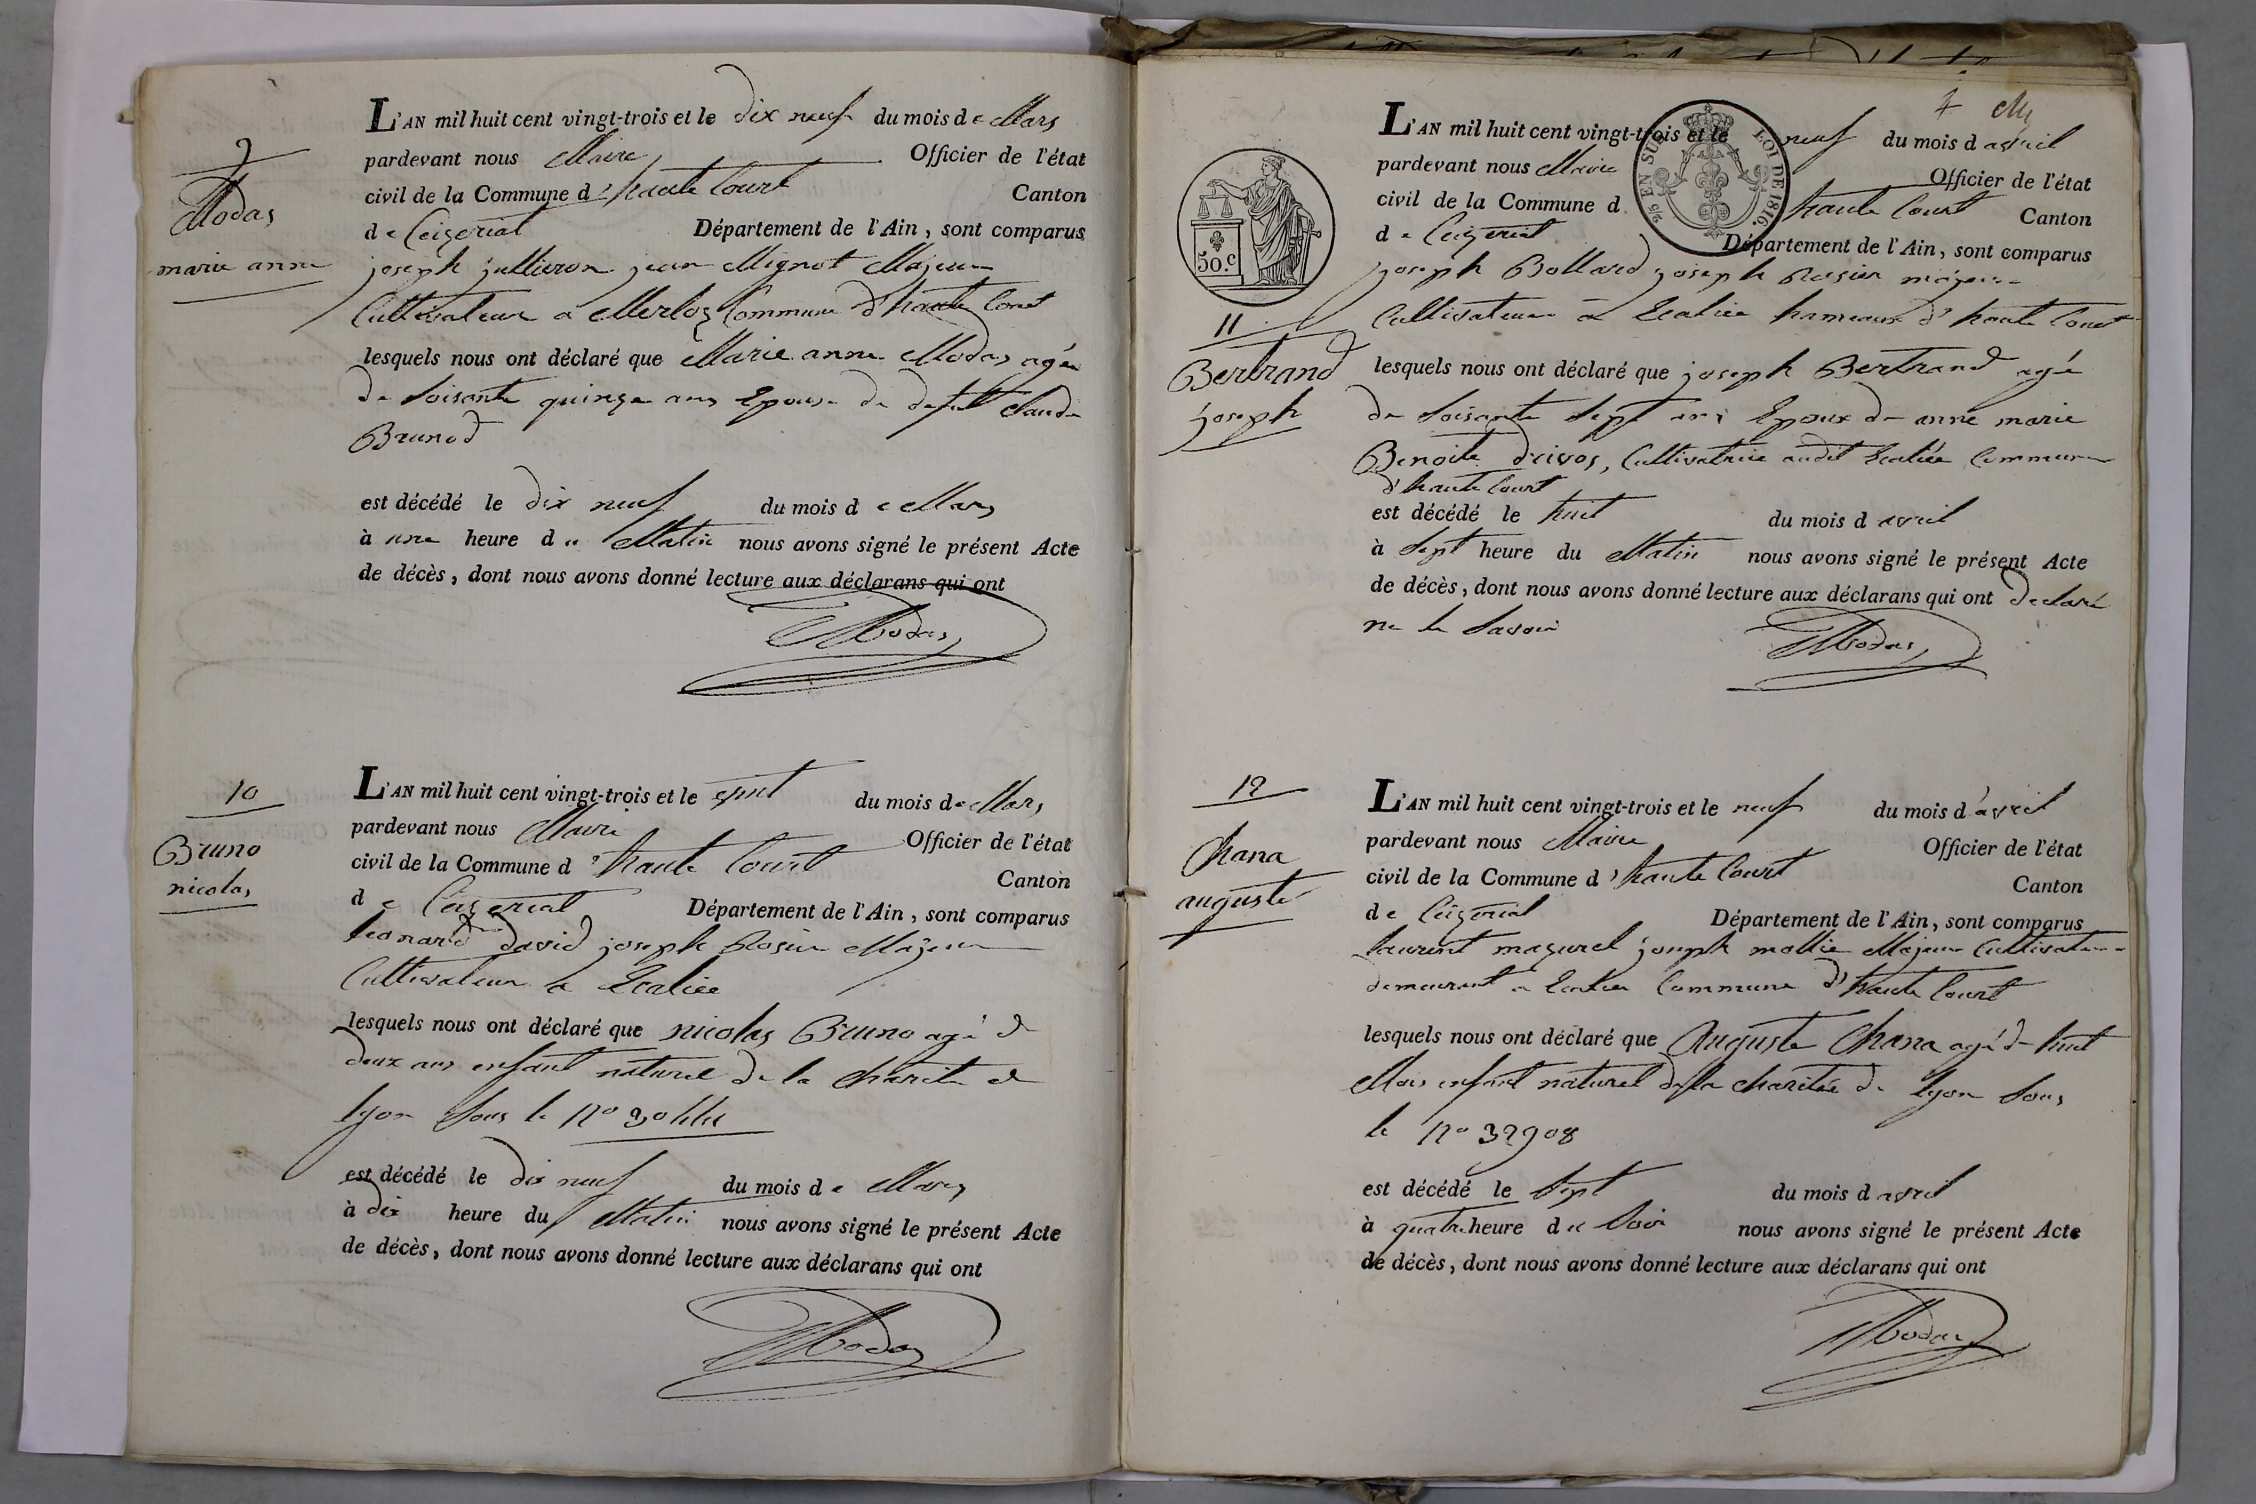 9
Modas
marie anne
L'AN mil huit cent vingt-trois et le dix neuf du mois de Mars
pardevant nous Maire Officier de l'état
civil de la Commune d'haute Court Canton
de Ceizeriat Département de l'Ain, sont comparus
joseph jullieron jean Mignot Majeur
Cultivateur a Merloz Commune d'haute Court
lesquels nous ont déclaré que Marie anne Modas agée
de soisante quinze ans Epouse de defunt claude
Brunod
est décédé le dix neuf du mois de Mars
à une heure du Matin nous avons signé le présent Acte
de décès, dont nous avons donné lecture aux déclarans qui ont
Modas
10
Bruno
nicolas
L'AN mil huit cent vingt-trois et le vint du mois de Mars
pardevant nous Maire Officier de l'état
civil de la Commune d'haute Court Canton
de Ceizeriat Département de l'Ain, sont comparus
leonard david joseph Rosier Majeur
Cultivateur a
lesquels nous ont déclaré que nicolas Bruno agé de
deux ans enfant naturel de la charite de
lyon sous le No
est décédé le dix neuf du mois de Mars
à dix heure du Matin nous avons signé le présent Acte
de décès, dont nous avons donné lecture aux déclarans qui ont
Modas
4
50.c
25 EN SUS
LOI DE 1816.
11
Bertrand
joseph
L'AN mil huit cent vingt-trois et le neuf du mois d avril
pardevant nous Maire Officier de l'état
civil de la Commune d haute Court Canton
de Ceizeriat Département de l'Ain, sont comparus
joseph Bollard joseph Rosier majeur
Cultivateur a hameaux d'haute Court
lesquels nous ont déclaré que joseph Bertrand agé
de soisante sept ans Epoux de anne marie
Benoite Cultivatrice audit Commune
d'haute Court
est décédé le huit du mois d avril
à sept heure du Matin nous avons signé le présent Acte
de décès, dont nous avons donné lecture aux déclarans qui ont declaré
ne le savoir
Modas
12
Chana
auguste
L'AN mil huit cent vingt-trois et le neuf du mois d'avril
pardevant nous Maire Officier de l'état
civil de la Commune d'haute Court Canton
de Ceizeriat Département de l'Ain, sont comparus
laurent mazurel joseph mollie Majeur Cultivateur
demeurant a Commune d'haute Court
lesquels nous ont déclaré que Auguste Chana agé de huit
Mois enfant naturel de la charitée de lyon sous
le No 32908
est décédé le sept du mois d avril
à quatre heure du soir nous avons signé le présent Acte
de décès, dont nous avons donné lecture aux déclarans qui ont
Modas